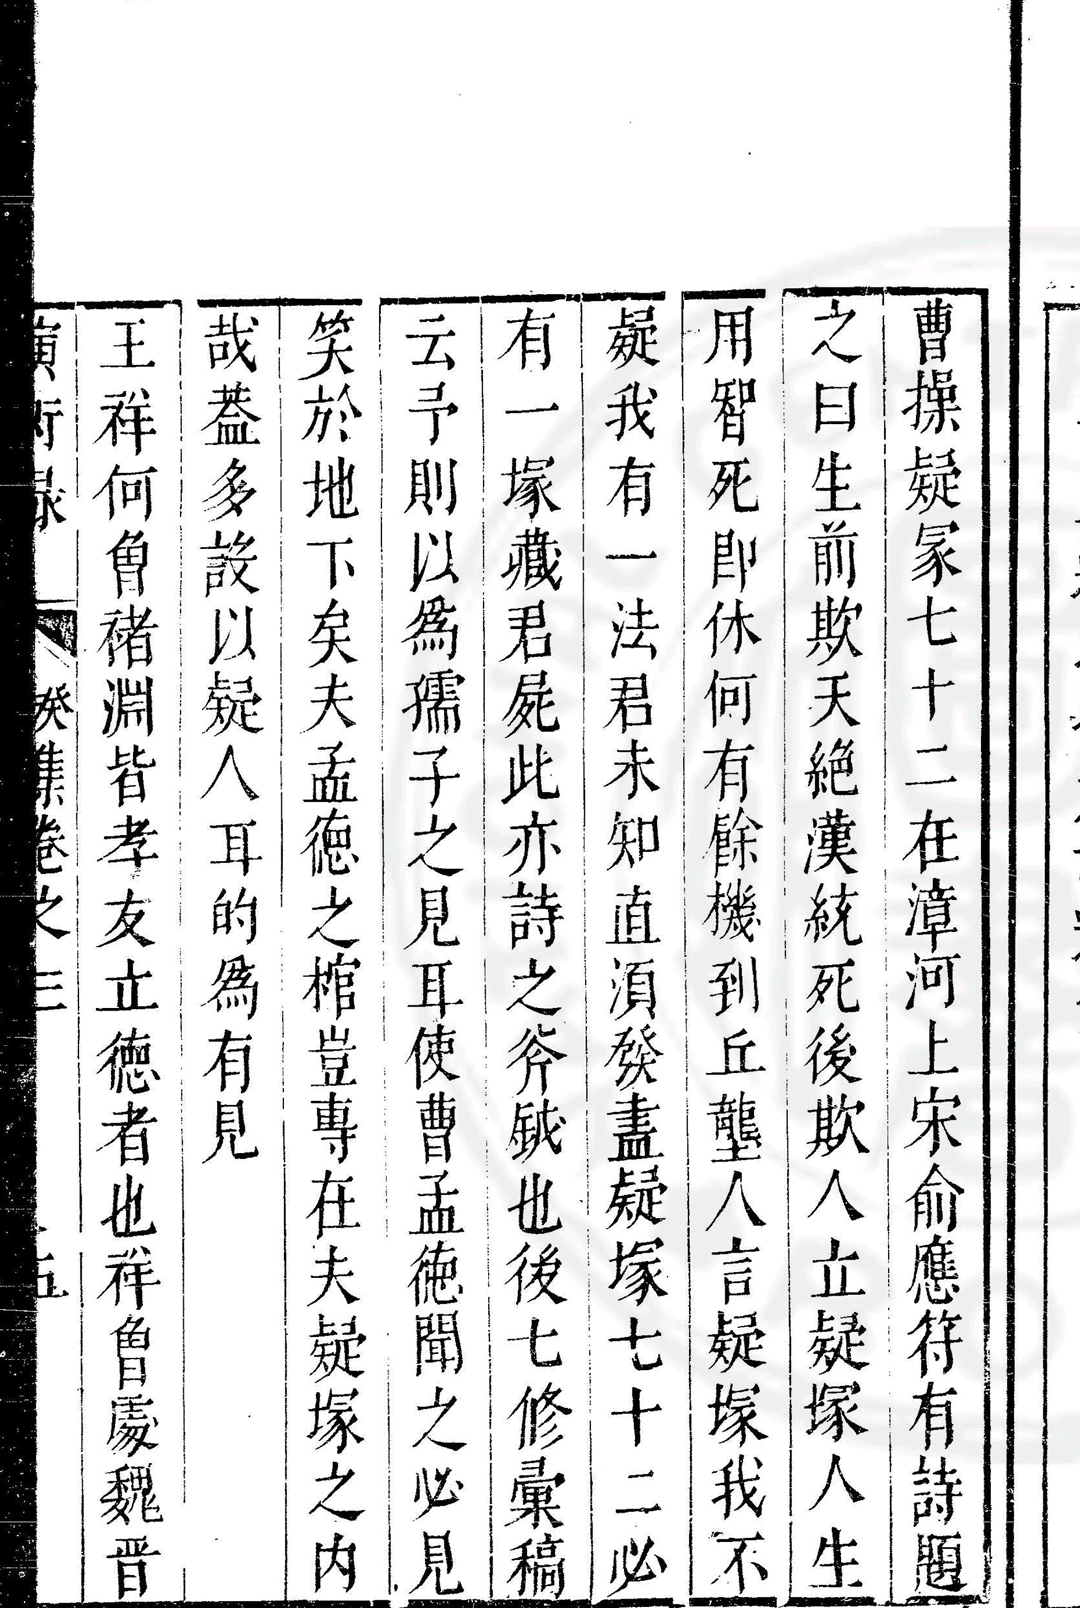 曹操疑冢七十二在漳河上宋俞應符有詩題
之曰生前欺天絕漢統死後欺人立疑塚人生
用智死即休何有餘機到丘壟人言疑塚我不
疑我有一法君未知直須發盡疑塚七十二必
有一塚藏君屍此亦詩之斧鉞也後七修彙稿
云予則以為孺子之見耳使曹孟德聞之必見
笑於地下矣夫孟德之棺豈專在夫疑塚之内
哉蓋多設以疑人耳的為有見
王祥何曾褚淵皆孝友立德者也祥曾處魏晉
癸集卷之三